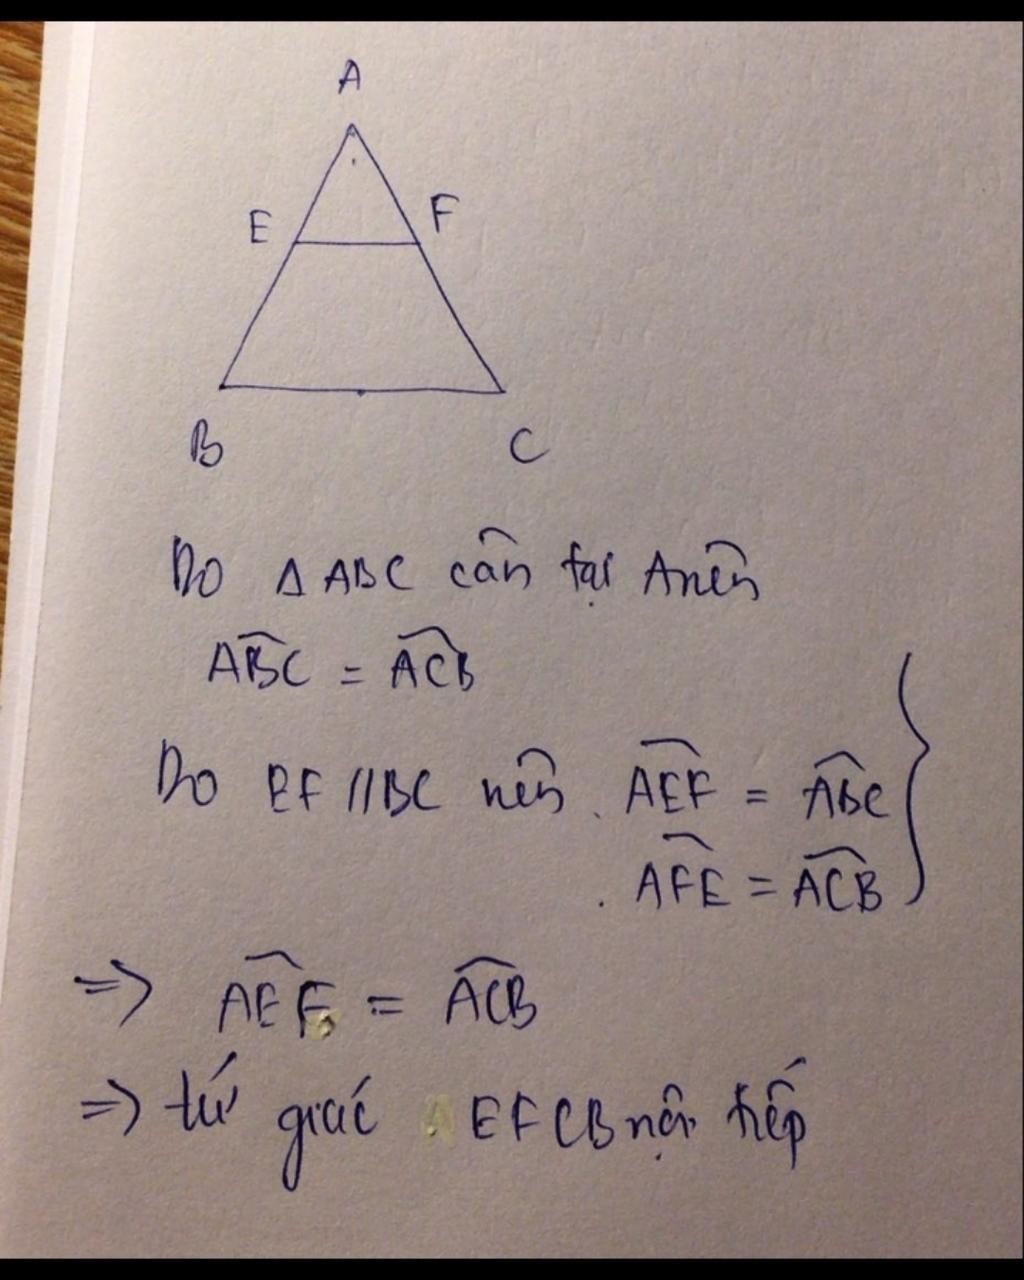 A
E
F
B
C
Do Δ ABC cân tại A nên
\widehat{ABC} = \widehat{ACB}
Do EF // BC nên . \widehat{AEF} = \widehat{ABC}
. \widehat{AFE} = \widehat{ACB}
=> \widehat{AEF} = \widehat{ACB}
=> tứ giác EFCB nội tiếp